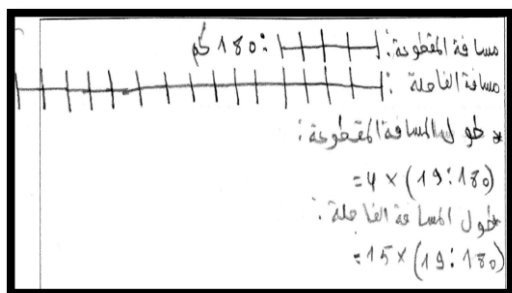 مسافة المقطوعة: 180 كم
مسافة الفاصلة:
* طول المسافة المقطوعة:
=4×(19:180)
طول المسافة الفاصلة:
=15×(19:180)